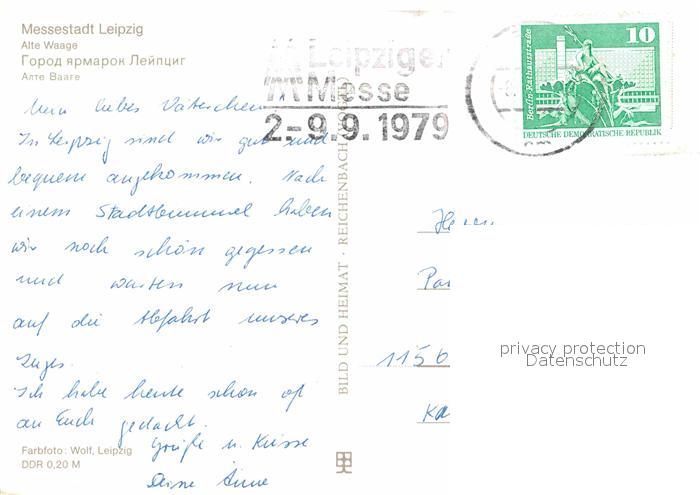 Messestadt Leipzig
Alte Waage
Город ярмарок Лейпциг
Алте Вааге
Leipziger
Messe
2.-9.9.1979
Berlin, Rathausstraße
10
DEUTSCHE DEMOKRATISCHE REPUBLIK
Mein liebes Väterchen
In Leipzig sind wir gut und
bequem angekommen. Nach
einem Stadtbummel haben
wir noch schön gegessen
und warten nun
auf die Abfahrt unseres
Zuges.
Ich habe heute schon oft
an Euch gedacht.
Grüße u. Küsse
Deine
Farbfoto: Wolf, Leipzig
DDR 0,20 M
BILD UND HEIMAT · REICHENBACH
Herrn
1156
privacy protection
Datenschutz